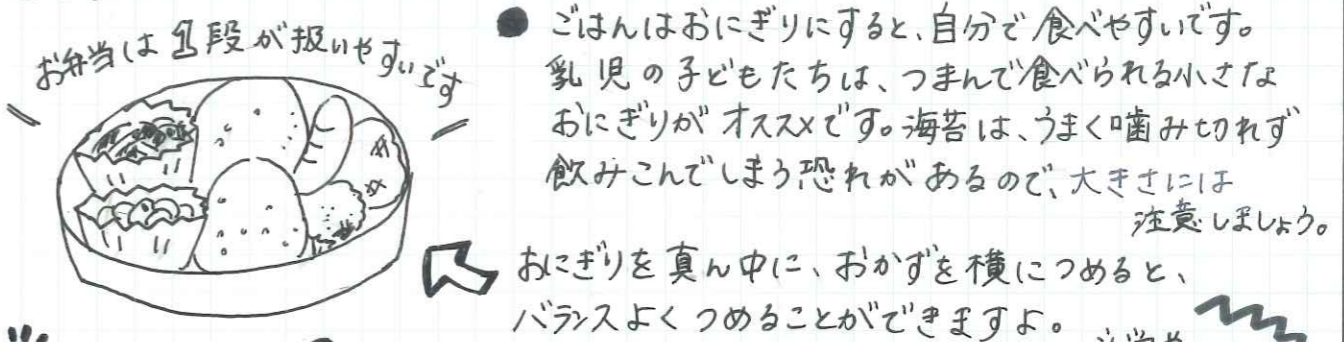 お弁当は1段が扱いやすいです
● ごはんはおにぎりにすると、自分で食べやすいです。
乳児の子どもたちは、つまんで食べられる小さな
おにぎりがオススメです。海苔は、うまく噛み切れず
飲みこんでしまう恐れがあるので、大きさには
注意しましょう。
おにぎりを真ん中に、おかずを横につめると、
バランスよくつめることができますよ。